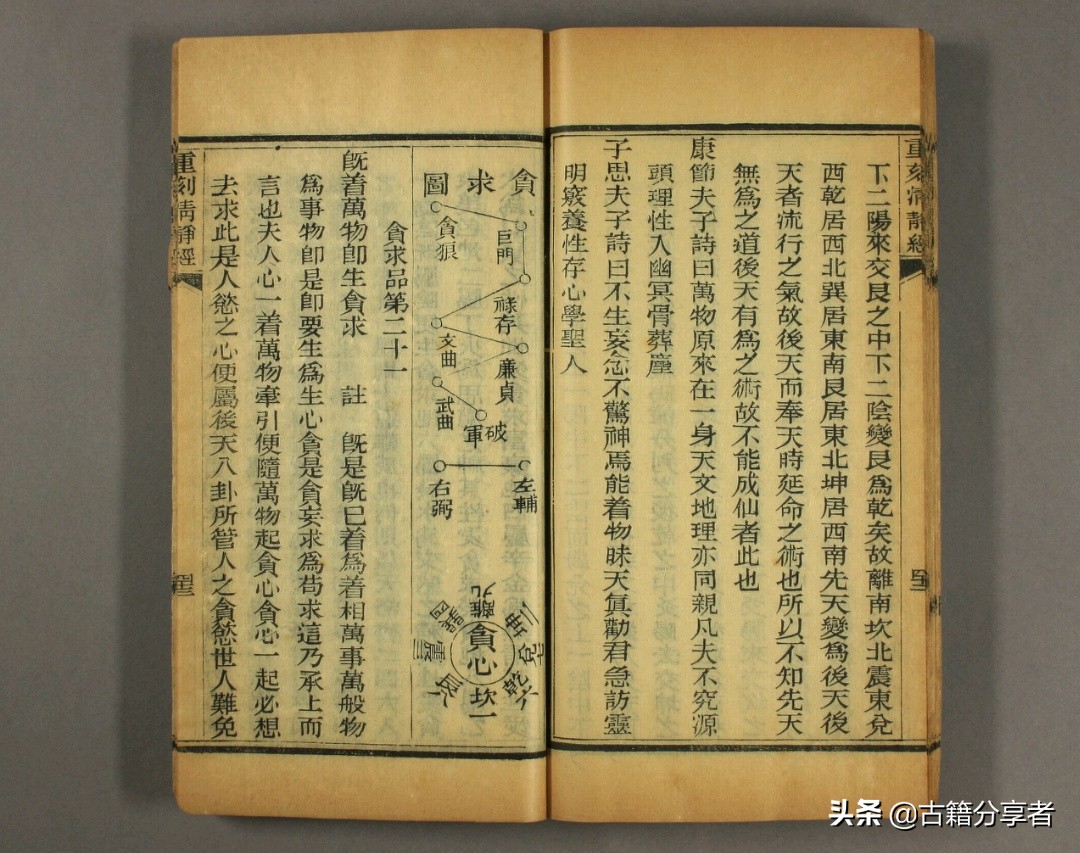 重刻清靜經
下二陽來交艮之中下二陰變艮爲乾矣故離南坎北震東兌
西乾居西北巽居東南艮居東北坤居西南先天變爲後天後
天者流行之氣故後天而奉天時延命之術也所以不知先天
無爲之道後天有爲之術故不能成仙者此也
康節夫子詩曰萬物原來在一身天文地理亦同親凡夫不究源
頭理性入幽冥骨葬塵
子思夫子詩曰不生妄念不驚神焉能着物昧天眞勸君急訪靈
明竅養性存心學聖人
貪求圖
貪狼
巨門
祿存
文曲
廉貞
武曲
破軍
左輔
右弼
離九
坤二
兌七
乾六
坎一
艮八
震三
巽四
貪心
貪求品第二十一
旣着萬物卽生貪求 註 旣是旣已着爲着相萬事萬般物
爲事物卽是卽要生爲生心貪是貪妄求爲苟求這乃承上而
言也夫人心一着萬物牽引便隨萬物起貪心貪心一起必想
去求此是人慾之心便屬後天八卦所管人之貪慾世人難免
重刻清靜經
头条 @古籍分享者